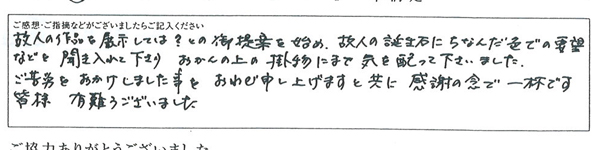 ご感想・ご指摘などがございましたらご記入ください
故人の作品を展示しては？との御提案を始め、故人の誕生石にちなんだ色での要望
などを聞き入れて下さり おかんの上の掛物にまで気を配って下さいました。
ご苦労をおかけしました事を おわび申し上げますと共に 感謝の念で一杯です
皆様 有難うございました
ご協力ありがとうございました